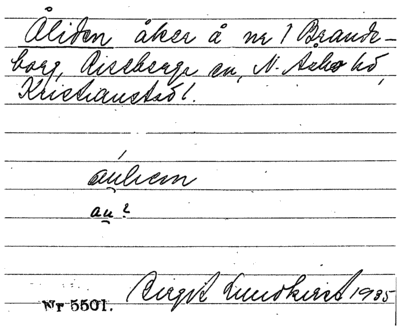 Åliden åker å nr 1 Brande-
borg, Riseberga sn, N. Åsbo hd,
Kristianstad l.
au?
Nr 5501. Birgit Lundkvist 1935